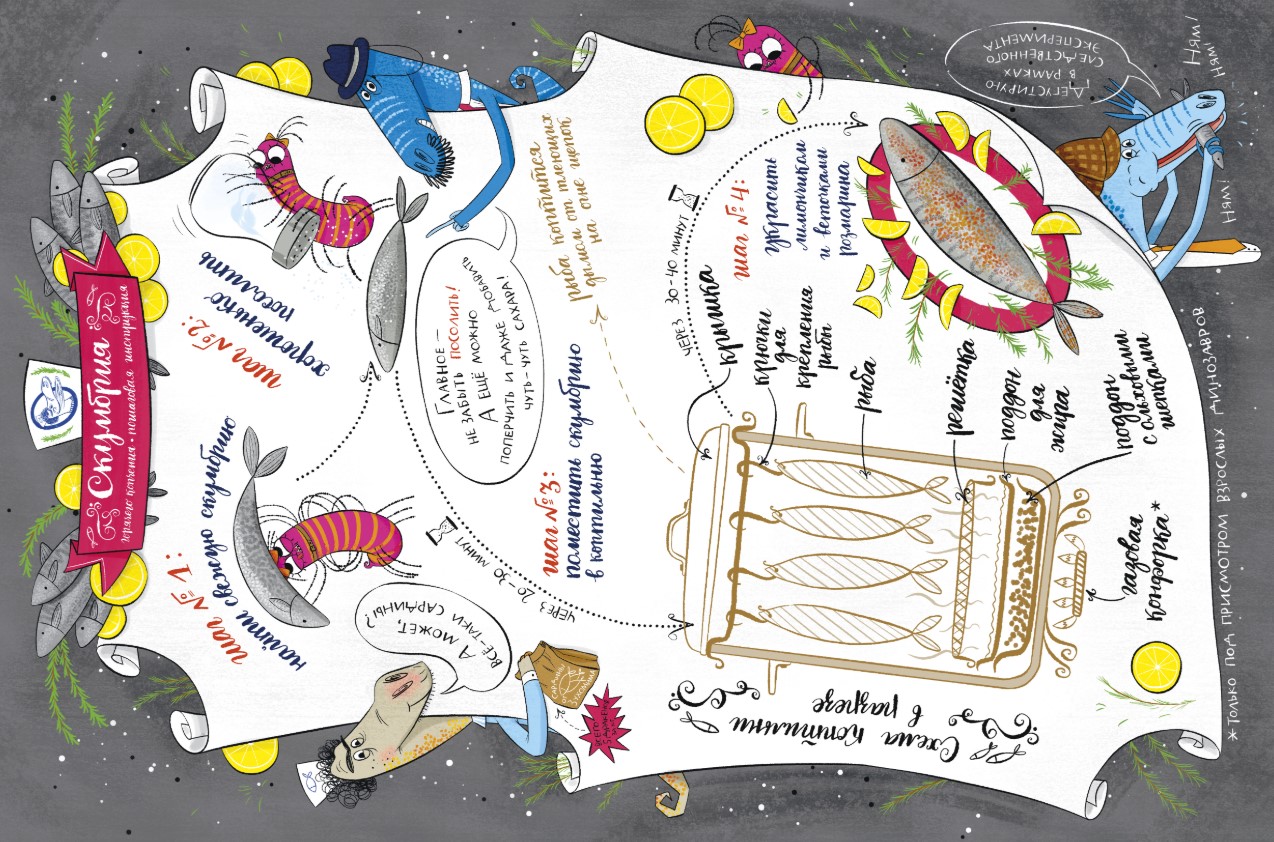 Скумбрия
горячего копчения • пошаговая инструкция
шаг № 1:
найти свежую скумбрию
шаг № 2:
хорошенько
посолить
А может,
всё-таки сардины?
Главное –
не забыть посолить!
А ещё можно
поперчить и даже добавить
чуть-чуть сахара!
через 20-30 минут
шаг № 3:
поместить скумбрию
в коптильню
рыба коптится
дымом от тлеющих
на огне щепок
Схема коптильни
в разрезе
крышка
крючки
для
крепления
рыб
рыба
решётка
поддон
для
жира
поддон
с ольховыми
щепками
газовая
конфорка*
через 30-40 минут
шаг № 4:
украсить
лимончиком
и веточками
розмарина
Дегустирую
в рамках
следственного
эксперимента
Ням!
Ням!
Ням!
* Только под присмотром взрослых динозавров